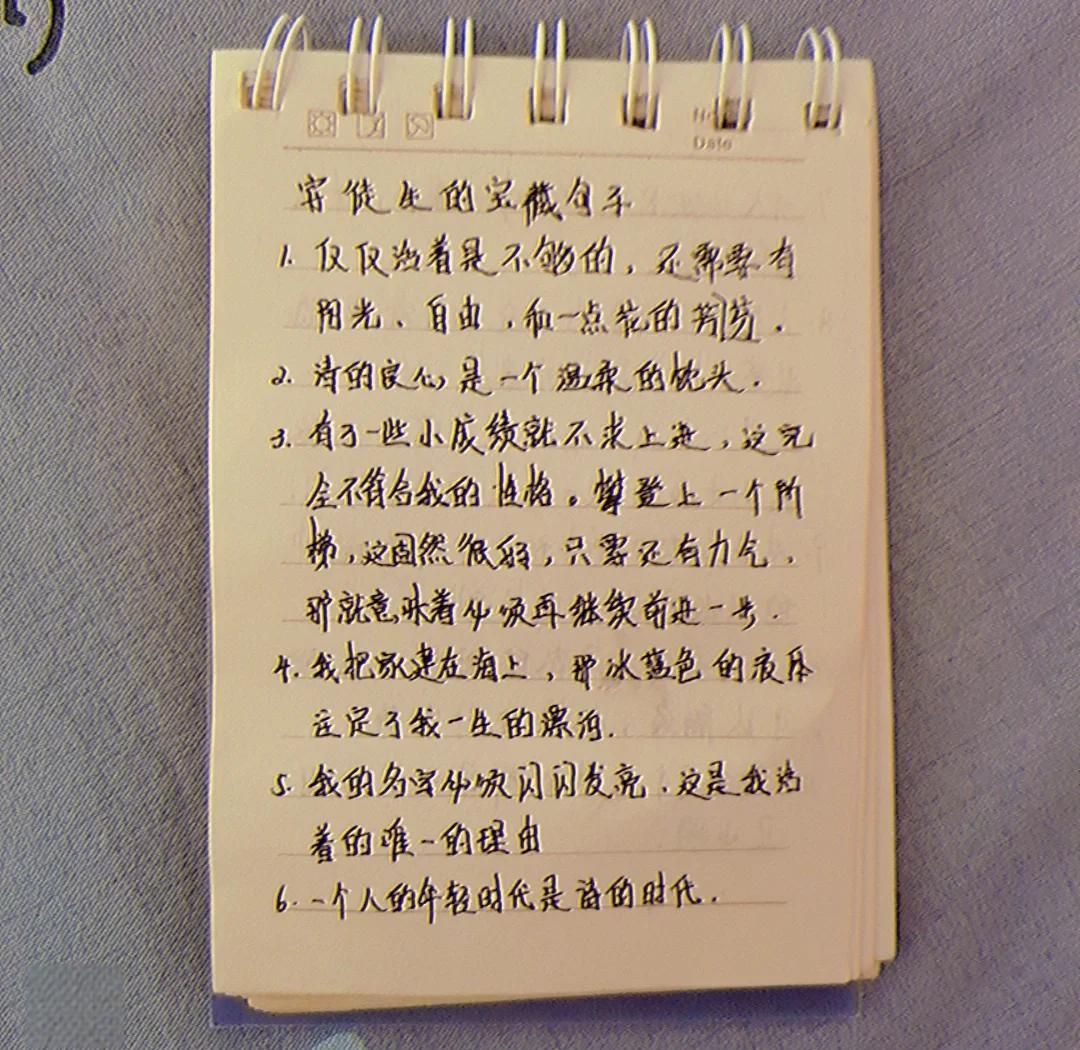 No
Date
安徒生的宝藏句子
1. 仅仅活着是不够的，还需要有
阳光、自由，和一点花的芳芬.
2. 清的良心是一个温柔的枕头.
3. 有了一些小成绩就不求上进，这完
全不符合我的性格。攀登上一个阶
梯，这固然很好，只要还有力气，
那就意味着必须再继续前进一步.
4. 我把家建在海上，那冰蓝色的液体
注定了我一生的漂泊.
5. 我的名字必须闪闪发亮.这是我活
着的唯一的理由
6. 一个人的年轻时代是诗的时代.